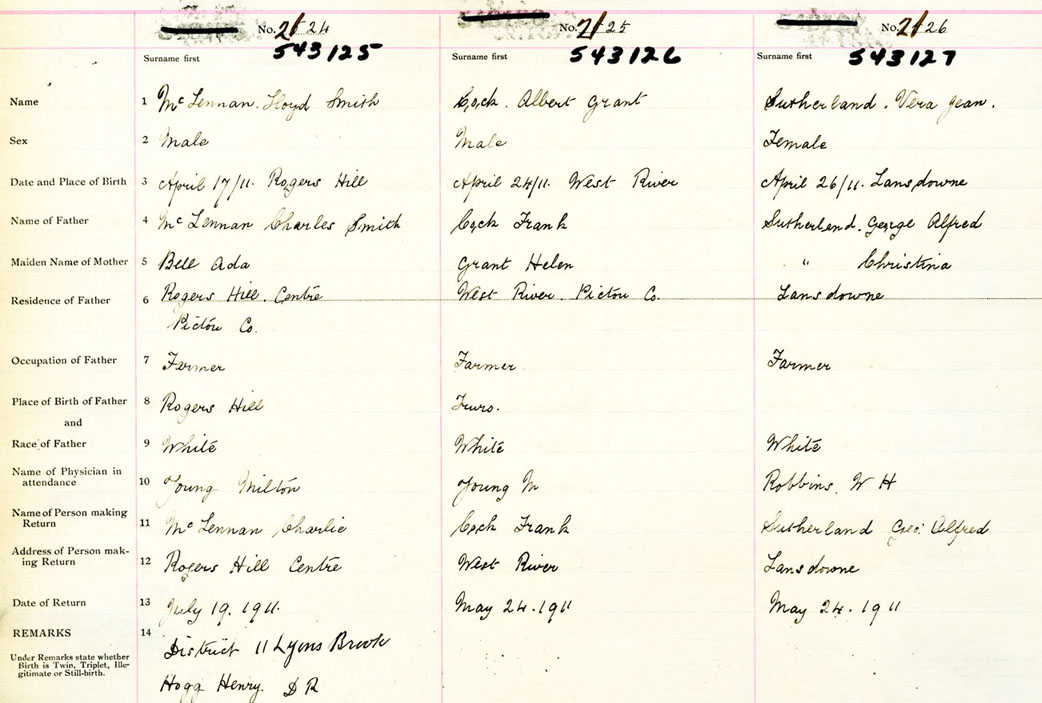 No. 2124 No. 2125 No. 2126
543125 543126 543127
Surname first Surname first Surname first
Name 1 McLennan. Lloyd Smith Cock. Albert Grant Sutherland. Vera Jean.
Sex 2 Male Male Female
Date and Place of Birth 3 April 17/11. Rogers Hill April 24/11. West River April 26/11. Lansdowne
Name of Father 4 McLennan Charles Smith Cock Frank Sutherland. George Alfred
Maiden Name of Mother 5 Bell Ada Grant Helen " Christina
Residence of Father 6 Rogers Hill. Centre West River. Pictou Co. Lansdowne
Pictou Co.
Occupation of Father 7 Farmer Farmer Farmer
Place of Birth of Father 8 Rogers Hill Truro.
and
Race of Father 9 White White White
Name of Physician in
attendance 10 Young Milton Young M Robbins. W H
Name of Person making
Return 11 McLennan Charlie Cock Frank Sutherland Geo. Alfred
Address of Person mak-
ing Return 12 Rogers Hill Centre West River Lansdowne
Date of Return 13 July 19. 1911. May 24. 1911 May 24. 1911
REMARKS 14 District 11 Lyons Brook
Under Remarks state whether
Birth is Twin, Triplet, Ille-
gitimate or Still-birth.
Hogg Henry. D R